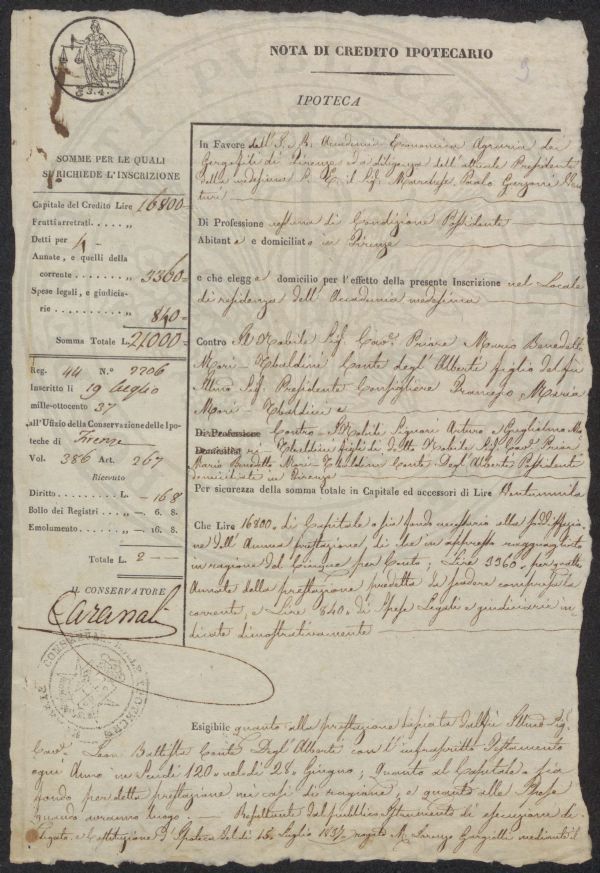 NOTA DI CREDITO IPOTECARIO
9
IPOTECA
C. 3.4.
SOMME PER LE QUALI
SI RICHIEDE L'INSCRIZIONE
Capitale del Credito Lire 16800=
Frutti arretrati . . . . . „
Detti per 4 -
Annate, e quelli della
corrente . . . . . . . . „ 3360=
Spese legali, e giudicia-
rie . . . . . . . . . . . „ 840=
Somma Totale L. 21000=
Reg. 44 N.° 2206
Inscritto li 19 Luglio
mille-ottocento 37
all'Uffizio della Conservazione delle Ipo-
teche di Firenze
Vol. 386 Art. 267
Ricevuto
Diritto . . . . . . . . L. - 16 8
Bollo dei Registri . . „ —. 6. 8.
Emolumento . . . . „ —. 16. 8.
Totale L. 2 —
IL CONSERVATORE
In Favore dell' I. e R. Accademia Economica Agraria dei
Gergofili di Firenze e a diligenza dell'attuale Presidente
della medesima S. E. il Sig. Marchese Paolo Garzoni Ven
turi
Di Professione nessuna di Condizione Possidente
Abitante e domiciliato in Firenze
e che elegge domicilio per l'effetto della presente Inscrizione nel Locale
di residenza dell'Accademia medesima
Contro Il Nobile Sig. Cav. Priore Mario Benedetto
Mori-Ubaldini Conte degl'Alberti figlio del fu
Illmo Sig. Presidente Consigliere Francesco Maria
Mori Ubaldini e
Di Professione Contro i Nobili Signori Arturo e Guglielmo Mo
Domiciliato ri Ubaldini figli di detto Nobile Sig. Cav. Prior
Mario Benedetto Mori-Ubaldini Conte Degl'Alberti Possidenti
domiciliati in Firenze
Per sicurezza della somma totale in Capitale ed accessori di Lire Ventunmila
Che Lire 16800. di Capitale o sia fondo necessario alla soddisfazio
ne dell'Annua prestazione, di che in appresso ragguagliato
in ragione del Cinque per Cento; Lire 3360. per quattro
Annate della prestazione predetta da scadere compresa la
corrente, e Lire 840. di Spese Legali e giudiciarie in
dicate dimostrativamente
Esigibile quanto alla prestazione lasciata dal fu Illmo Sig.
Cav. Leon Battista Conte Degl'Alberti con l'infrascritto Testamento
ogni Anno in Scudi 120. nel dì 28. Giugno; Quanto al Capitale o sia
fondo per detta prestazione nei casi di ragione; e quanto alle Spese
quando avranno luogo. — Resultante dal pubblico Istrumento di esecuzione di
Legato, e Costituzione d'Ipoteca del dì 15. Luglio 1837. rogato M. Lorenzo Gargiolli mediante il